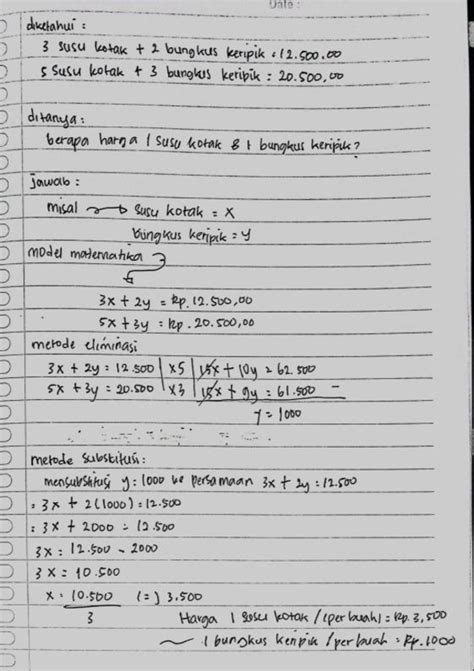 Date :
diketahui :
3 susu kotak + 2 bungkus keripik = 12.500,00
5 susu kotak + 3 bungkus keripik = 20.500,00
ditanya :
berapa harga 1 susu kotak & 1 bungkus keripik?
jawab :
misal → susu kotak = x
bungkus keripik = y
model matematika
3x + 2y = Rp. 12.500,00
5x + 3y = Rp. 20.500,00
metode eliminasi
3x + 2y = 12.500 | x5 | 15x + 10y = 62.500
5x + 3y = 20.500 | x3 | 15x + 9y = 61.500 −
y = 1000
metode substitusi:
mensubstitusi y = 1000 ke persamaan 3x + 2y = 12.500
= 3x + 2(1000) = 12.500
= 3x + 2000 = 12.500
3x = 12.500 - 2000
3x = 10.500
x = 10.500 (=) 3.500
3
Harga 1 susu kotak / (per buah) = Rp. 3,500
~ 1 bungkus keripik / per buah = Rp. 1000